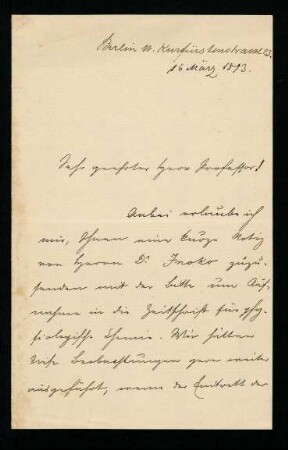 Berlin W. Kurfürstenstrasse 23.
18 März 1893.
Sehr geehrter Herr Professor!
Anbei erlaube ich
mir, Ihnen eine kurze Notiz
von Herrn Dr Inoko zuzu-
senden mit der Bitte um Auf-
nahme in die Zeitschrift für phy-
siologische Chemie. Wir hätten
diese Beobachtungen gern weiter
ausgeführt, wenn der Eintritt der